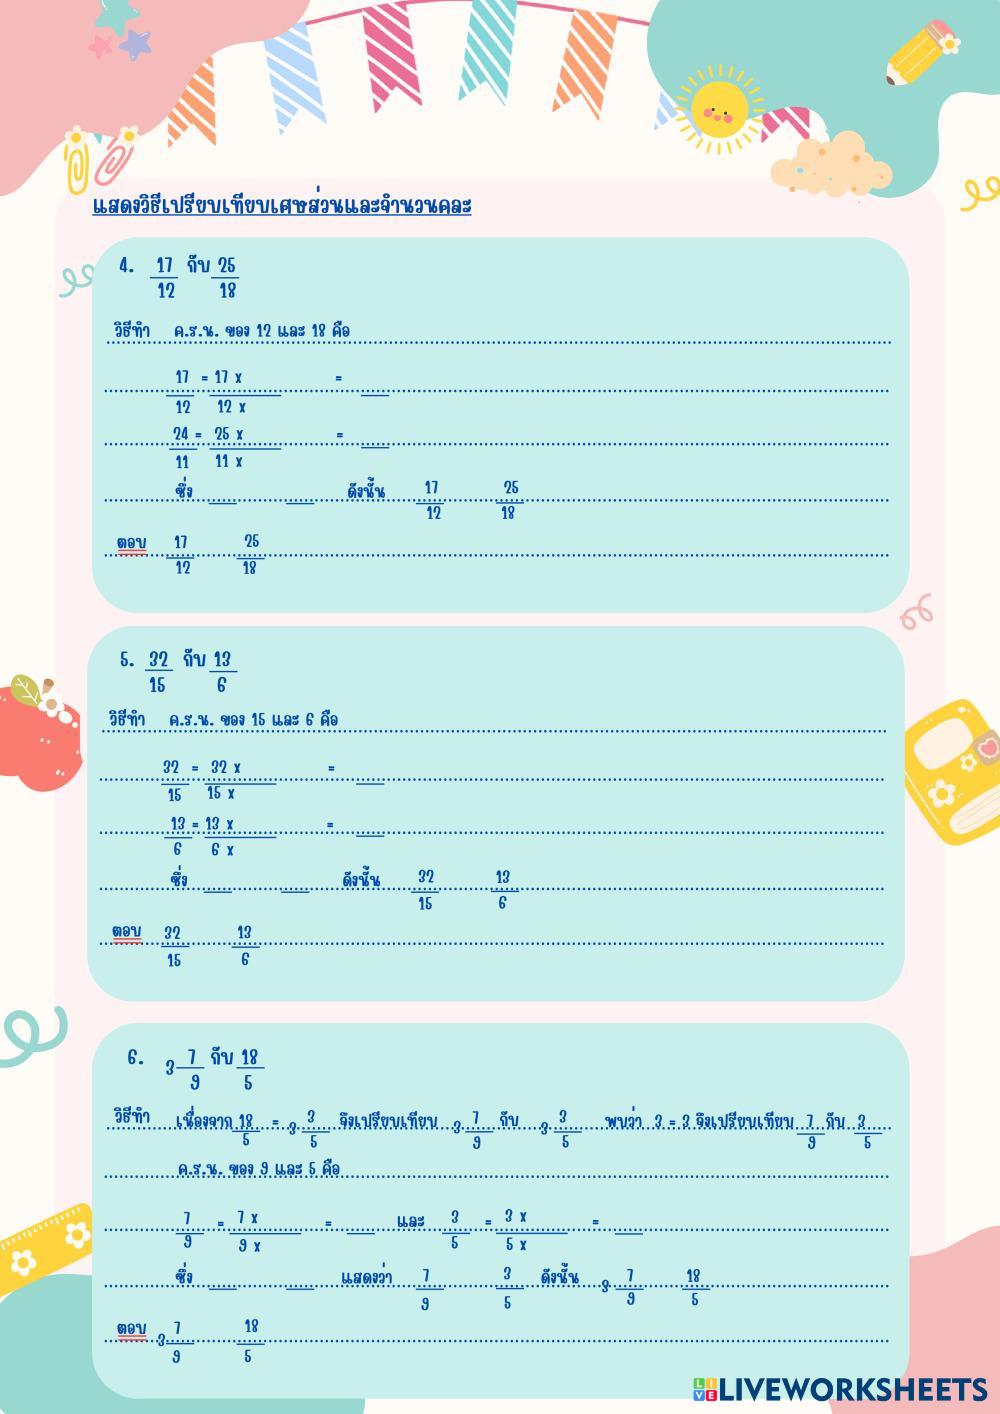 แสดงวิธีเปรียบเทียบเศษส่วนและจำนวนคละ
4. 17/12 กับ 25/18
วิธีทำ ค.ร.น. ของ 12 และ 18 คือ
17/12 = 17 x / 12 x =
24/11 = 25 x / 11 x =
ซึ่ง ดังนั้น 17/12 25/18
ตอบ 17/12 25/18
5. 32/15 กับ 13/6
วิธีทำ ค.ร.น. ของ 15 และ 6 คือ
32/15 = 32 x / 15 x =
13/6 = 13 x / 6 x =
ซึ่ง ดังนั้น 32/15 13/6
ตอบ 32/15 13/6
6. 3 7/9 กับ 18/5
วิธีทำ เนื่องจาก 18/5 = 3 3/5 จึงเปรียบเทียบ 3 7/9 กับ 3 3/5 พบว่า 3 = 3 จึงเปรียบเทียบ 7/9 กับ 3/5
ค.ร.น. ของ 9 และ 5 คือ
7/9 = 7 x / 9 x = และ 3/5 = 3 x / 5 x =
ซึ่ง แสดงว่า 7/9 3/5 ดังนั้น 3 7/9 18/5
ตอบ 3 7/9 18/5
LIVE LIVEWORKSHEETS